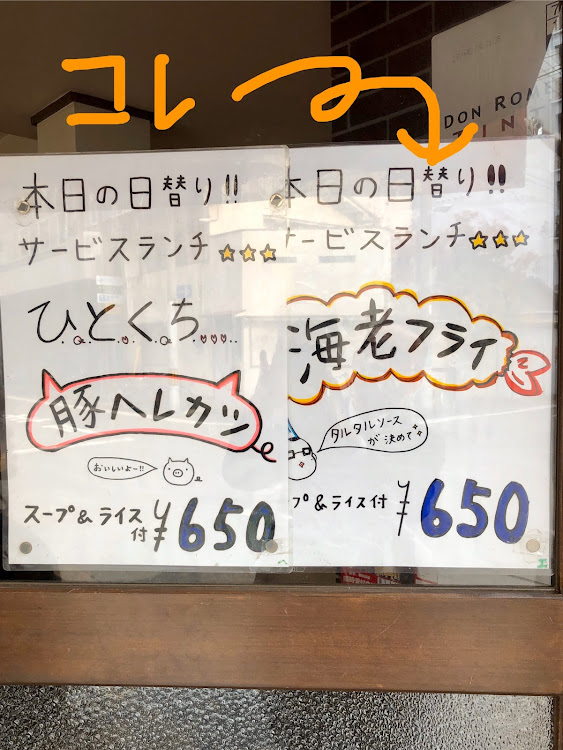 コレ
DON ROME
本日の日替り!!
サービスランチ☆☆☆
ひとくち....
豚ヘレカツ
おいしいよー!!
スープ&ライス付
¥650
本日の日替り!!
ービスランチ☆☆☆
海老フライ
タルタルソース
が決めて
プ&ライス付
¥650